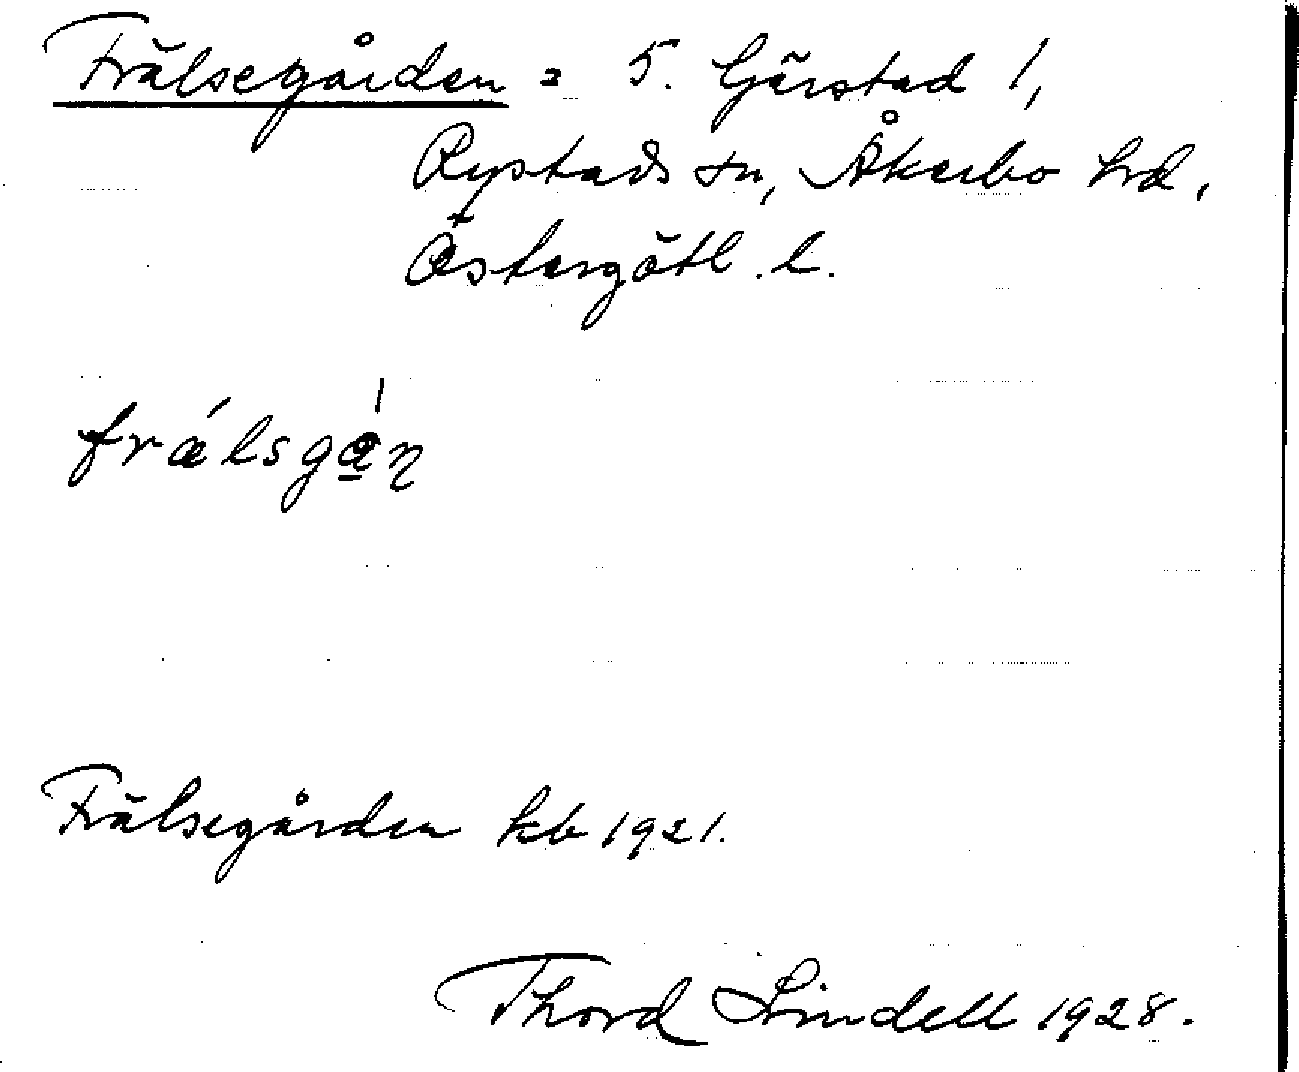 Frälsegården = 5. Gärstad 1,
Rystads sn, Åkerbo hd,
Östergötl. l.
frálsgån
Frälsegården kb 1921.
Thord Lindell 1928.